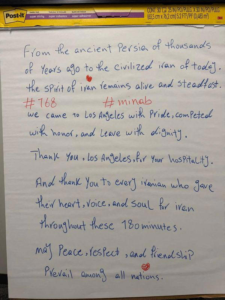 Post-it
From the ancient Persia of thousands
of Years ago to the civilized iran of today.
the spirit of iran remains alive and steadfast.
#168 #minab
we came to Los Angeles with Pride, competed
with honor, and Leave with dignity.
Thank You, Los Angeles, for Your hospitality.
And thank You to every iranian who gave
their heart, voice, and soul for iran
throughout these 180 minutes.
may Peace, respect, and friendship
Prevail among all nations.